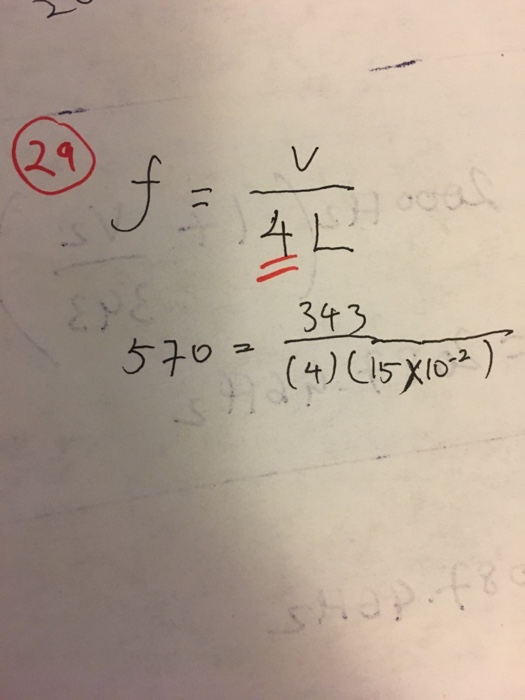 29
f = v / 4 L
570 = 343 / (4)(15×10⁻²)